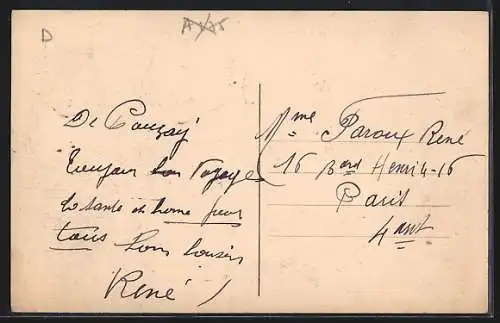 D
De Pouzay
Toujours bon Voyage
la santé est bonne pour
tous bons cousins
René
Mme Paroux René
16 Bard Henri 4 - 16
Paris
4 art